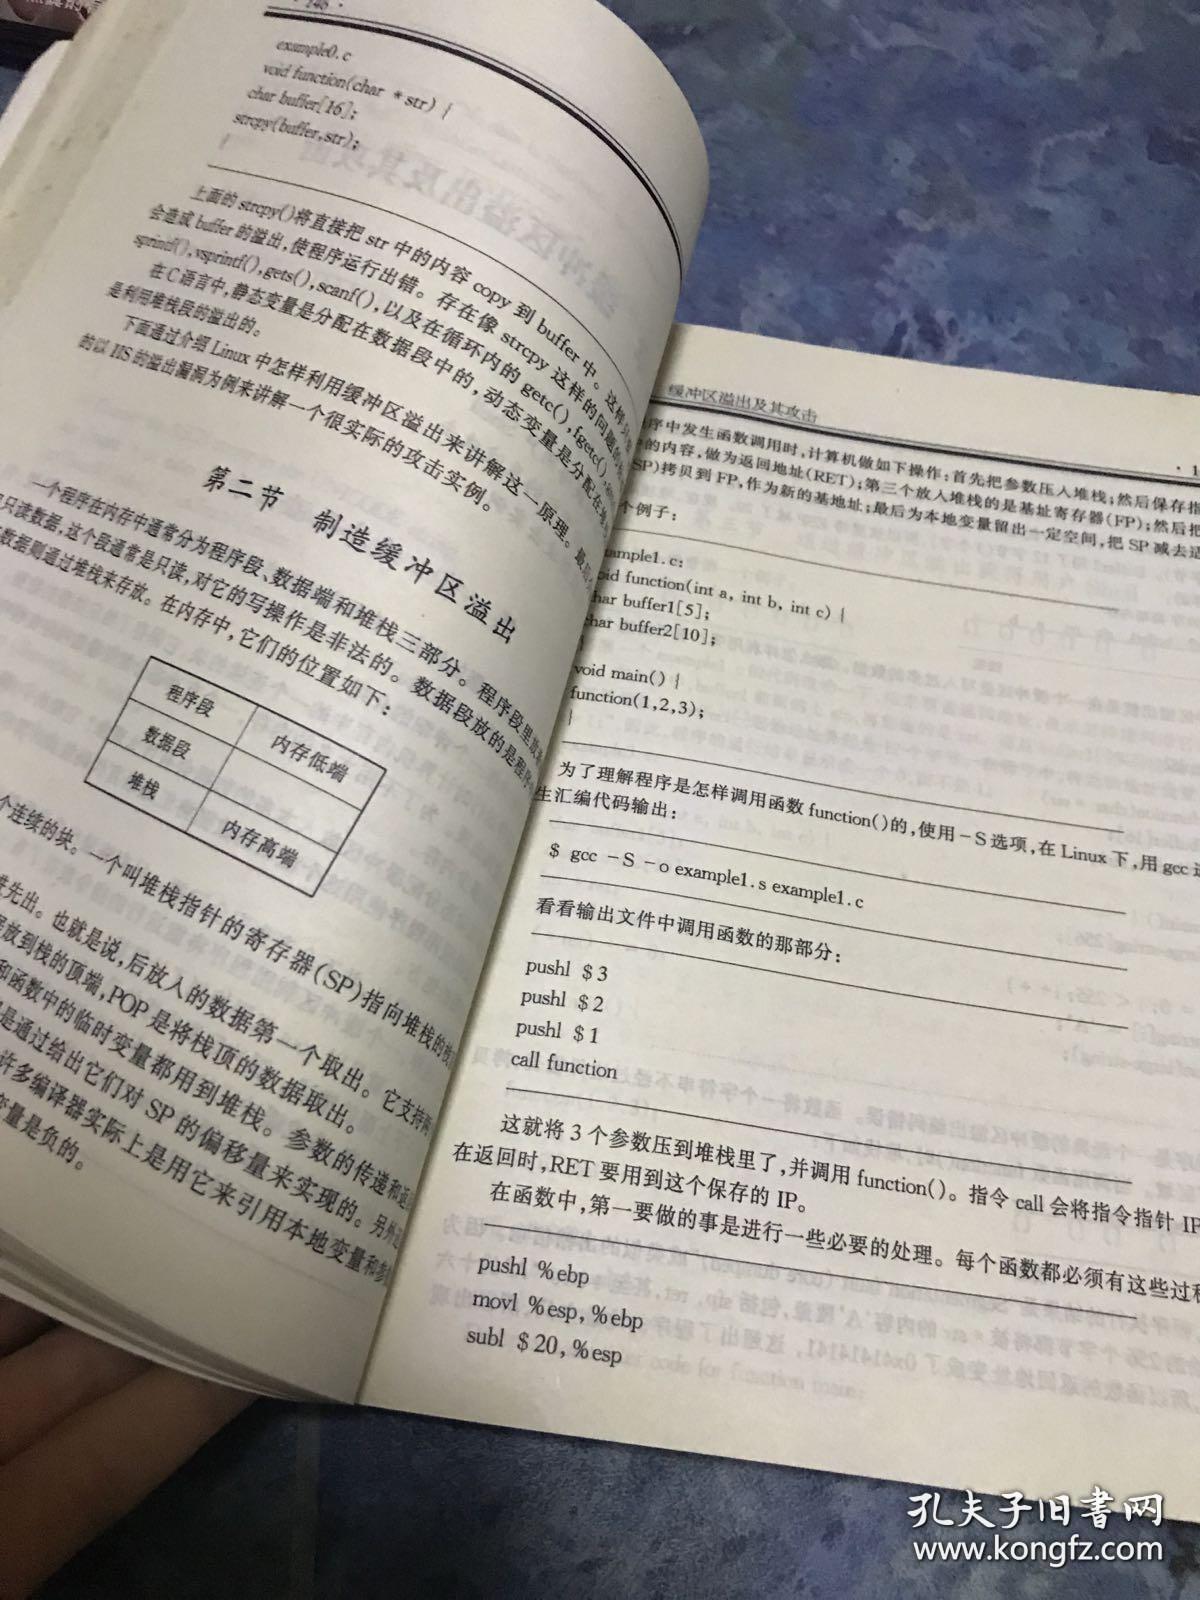 · 146 ·
example0. c
void function(char * str) {
char buffer[16];
strcpy(buffer,str);
}
上面的 strcpy()将直接把 str 中的内容 copy 到 buffer 中。这样只要
会造成 buffer 的溢出,使程序运行出错。存在像 strcpy 这样的问题的标
sprintf(),vsprintf(),gets(),scanf(),以及在循环内的 getc(),fgetc(),
在 C 语言中,静态变量是分配在数据段中的,动态变量是分配在堆
是利用堆栈段的溢出的。
下面通过介绍 Linux 中怎样利用缓冲区溢出来讲解这一原理。最后
的以 IIS 的溢出漏洞为例来讲解一个很实际的攻击实例。
第二节 制造缓冲区溢出
一个程序在内存中通常分为程序段、数据端和堆栈三部分。程序段里放
只读数据,这个段通常是只读,对它的写操作是非法的。数据段放的是程序
数据则通过堆栈来存放。在内存中,它们的位置如下:
程序段 内存低端
数据段
堆栈 内存高端
个连续的块。一个叫堆栈指针的寄存器(SP)指向堆栈的栈
进先出。也就是说,后放入的数据第一个取出。它支持两
放到栈的顶端,POP 是将栈顶的数据取出。
和函数中的临时变量都用到堆栈。参数的传递和返
是通过给出它们对 SP 的偏移量来实现的。另外
许多编译器实际上是用它来引用本地变量和参
变量是负的。
缓冲区溢出及其攻击
· 1
序中发生函数调用时,计算机做如下操作:首先把参数压入堆栈;然后保存指
中的内容,做为返回地址(RET);第三个放入堆栈的是基址寄存器(FP);然后把
SP)拷贝到 FP,作为新的基地址;最后为本地变量留出一定空间,把 SP 减去适
个例子:
example1. c:
void function(int a, int b, int c) {
char buffer1[5];
char buffer2[10];
}
void main() {
function(1,2,3);
}
为了理解程序是怎样调用函数 function()的,使用 -S 选项,在 Linux 下,用 gcc
生汇编代码输出:
$ gcc -S -o example1. s example1. c
看看输出文件中调用函数的那部分:
pushl $3
pushl $2
pushl $1
call function
这就将 3 个参数压到堆栈里了,并调用 function()。指令 call 会将指令指针 IP
在返回时,RET 要用到这个保存的 IP。
在函数中,第一要做的事是进行一些必要的处理。每个函数都必须有这些过程
pushl %ebp
movl %esp,%ebp
subl $20,%esp
孔夫子旧书网
www.kongfz.com